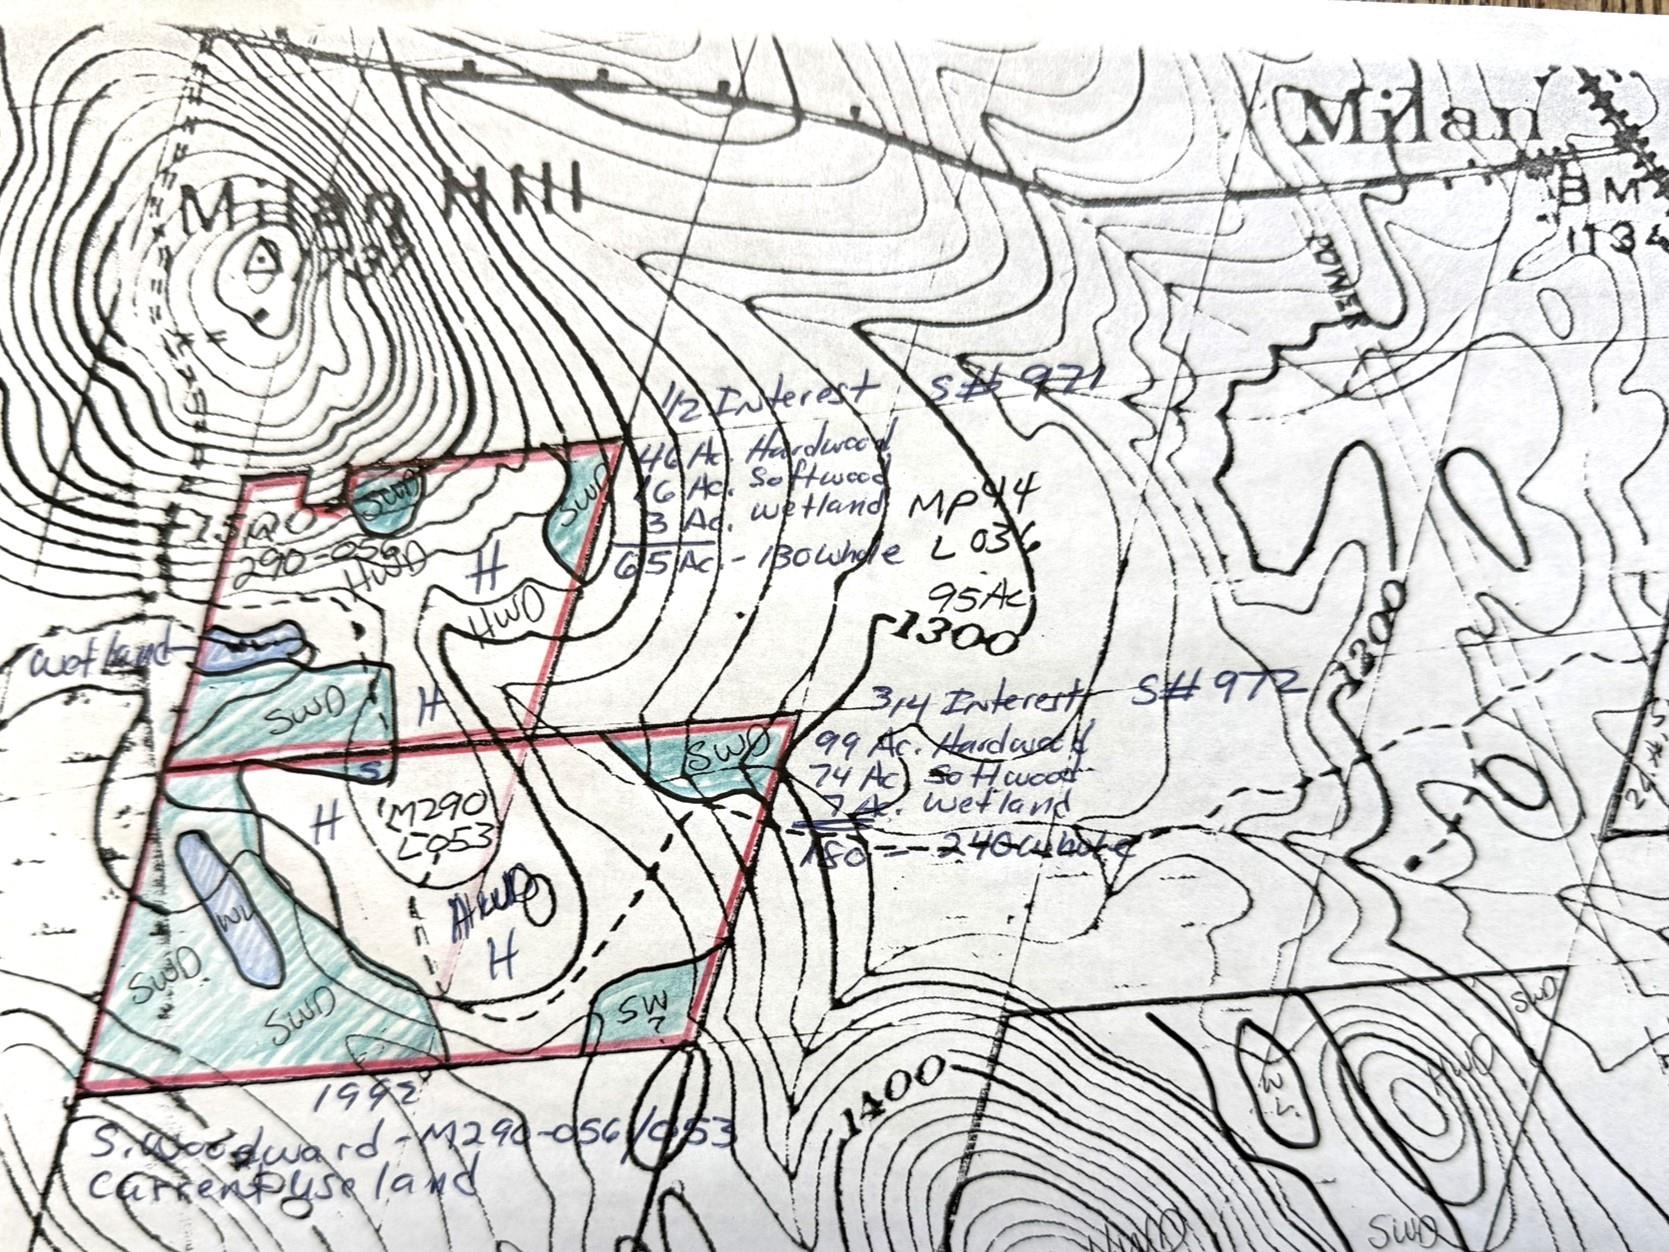 Milan
BM
1134
Milan Hill
1/2 Interest S# 971
46 Ac. Hardwood
16 Ac. Softwood
3 Ac. Wetland
65 Ac. - 130 whole
MP 44
L 036
95 Ac
1300
1200
SWD
SWD
290-056
HWD
H
HWD
Wetland
SWD
H
3/4 Interest S# 972
99 Ac. Hardwood
74 Ac Softwood
7 Ac. Wetland
180 - 240 whole
SWD
S
H
M290
L053
HWD
H
WL
SWD
SWD
SW
?
SWD
HWD
WL
1400
1992
S. Woodward - M290-056/053
Current Use land
HWD
SWD